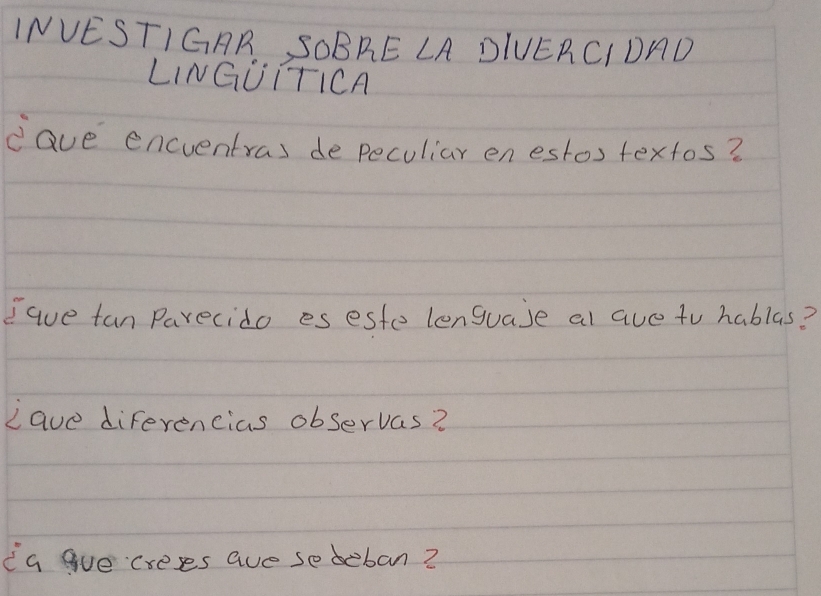 INVESTIGAR SOBRE LA DIVERCIDAD
LINGÜÍTICA
¿Qué encuentras de peculiar en estos textos?
¿que tan parecido es este lenguaje al que tu hablas?
¿que diferencias observas?
¿a que crees que se deban?